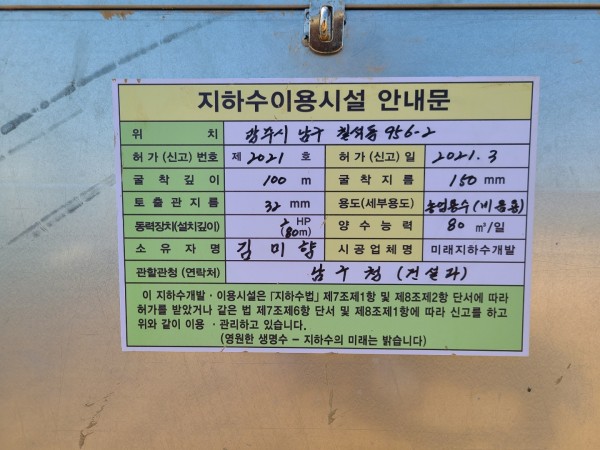 지하수이용시설 안내문
위 치 광주시 남구 칠석동 956-2
허가 (신고) 번호 제 2021 호 허가 (신고) 일 2021. 3
굴착깊이 100 m 굴착지름 150 mm
토출관지름 32 mm 용도(세부용도) 농업용수 (비음용)
동력장치(설치깊이) 2 HP (80m) 양수능력 80 ㎥/일
소유자명 김미향 시공업체명 미래지하수개발
관할관청 (연락처) 남구청 (건설과)
이 지하수개발 · 이용시설은 「지하수법」 제7조제1항 및 제8조제2항 단서에 따라
허가를 받았거나 같은 법 제7조제6항 단서 및 제8조제1항에 따라 신고를 하고
위와 같이 이용 · 관리하고 있습니다.
(영원한 생명수 - 지하수의 미래는 밝습니다)